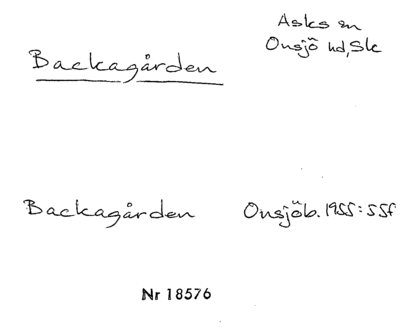 Asks sn
Backagården
Onsjö hd, Sk
Backagården Onsjöb. 1955: 55f
Nr 18576